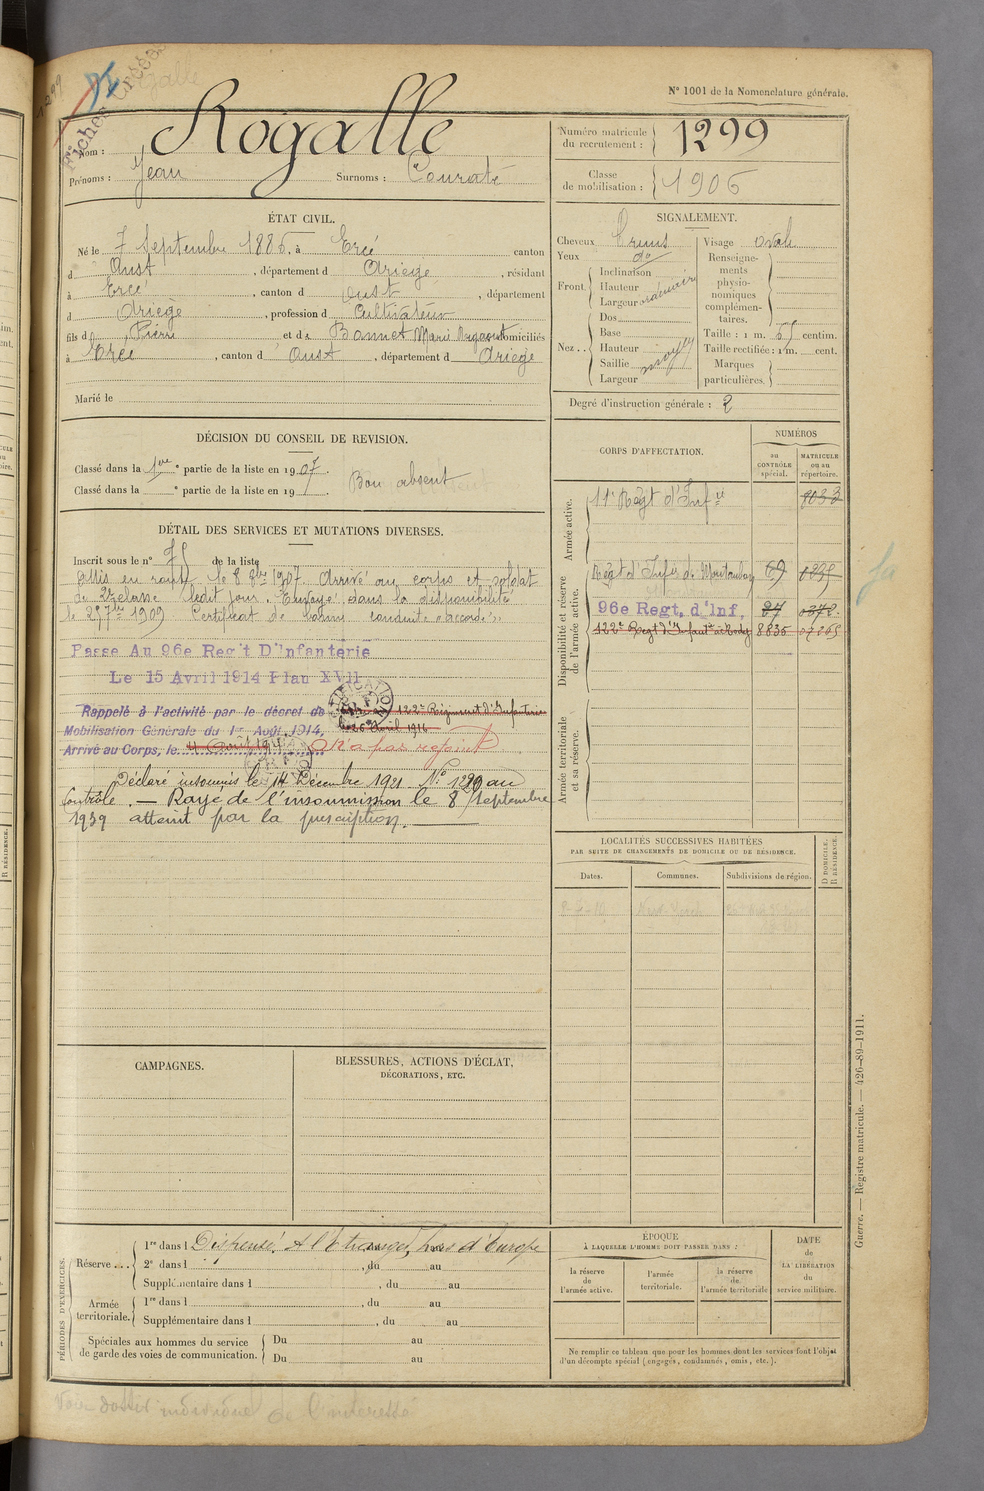 N° 1001 de la Nomenclature générale.
Nom : Rogalle
Prénoms : Jean Surnoms : Courate
Numéro matricule du recrutement : 1299
Classe de mobilisation : 1906
ÉTAT CIVIL.
Né le 7 Septembre 1886, à Ercé canton
d Oust, département d Ariège, résidant
à Ercé, canton d Oust, département
d Ariège, profession d Cultivateur
fils d Pierre et de Bonnet Marie domiciliés
à Ercé, canton d Oust, département d Ariège
Marié le
SIGNALEMENT.
Cheveux Bruns
Yeux do
Front
Inclinaison
Hauteur
Largeur
ordinaire
Nez
Dos
Base
Hauteur
Saillie
Largeur
moyen
Visage ovale
Renseignements physionomiques complémentaires.
Taille : 1 m. centim.
Taille rectifiée : 1 m. cent.
Marques particulières.
Degré d'instruction générale : 2
DÉCISION DU CONSEIL DE REVISION.
Classé dans la 1ère partie de la liste en 1907.
Classé dans la ° partie de la liste en 19
Bon absent
CORPS D'AFFECTATION.
NUMÉROS
au CONTRÔLE spécial.
MATRICULE ou au répertoire.
Armée active.
Régt d'Infie
Disponibilité et réserve de l'armée active.
Regt d'Infie de Montauban 69
96e Regt. d'Inf.
122e Regt d'Infantie à Rodez 8836
Armée territoriale et sa réserve.
DÉTAIL DES SERVICES ET MUTATIONS DIVERSES.
Inscrit sous le n° de la liste
Mis en route le 8 8bre 1907. Arrivé au corps et soldat
de 2e classe ledit jour. Envoyé dans la disponibilité
le 1909 Certificat de bonne conduite "accordé".
Passe Au 96e Reg't D'Infanterie
Le 15 Avril 1914 Plan XVII
Rappelé à l'activité par le décret de
Mobilisation Générale du 1er Août 1914,
Arrivé au Corps, le 4 Août 1914
122e Régiment d'Infanterie
N'a pas rejoint
Déclaré insoumis le 14 Décembre 1921 N° 1299 au
Contrôle. — Rayé de l'insoumission le 8 Septembre
1939 atteint par la prescription.
LOCALITÉS SUCCESSIVES HABITÉES
PAR SUITE DE CHANGEMENTS DE DOMICILE OU DE RÉSIDENCE.
Dates.
Communes.
Subdivisions de région.
D DOMICILE.
R RÉSIDENCE.
New-York
CAMPAGNES.
BLESSURES, ACTIONS D'ÉCLAT,
DÉCORATIONS, ETC.
PÉRIODES D'EXERCICES.
Réserve ...
1re dans l Dispensé. A l'Etranger, hors d'Europe
2e dans l , du au
Supplémentaire dans l , du au
Armée territoriale.
1re dans l , du au
Supplémentaire dans l , du au
Spéciales aux hommes du service de garde des voies de communication.
Du au
Du au
ÉPOQUE
À LAQUELLE L'HOMME DOIT PASSER DANS :
la réserve de l'armée active.
l'armée territoriale.
la réserve de l'armée territoriale
DATE de LA LIBÉRATION du service militaire.
Ne remplir ce tableau que pour les hommes dont les services font l'objet
d'un décompte spécial (engagés, condamnés, omis, etc.).
Guerre. — Registre matricule. — 426-89-1911.
Voir dossier individuel de l'intéressé